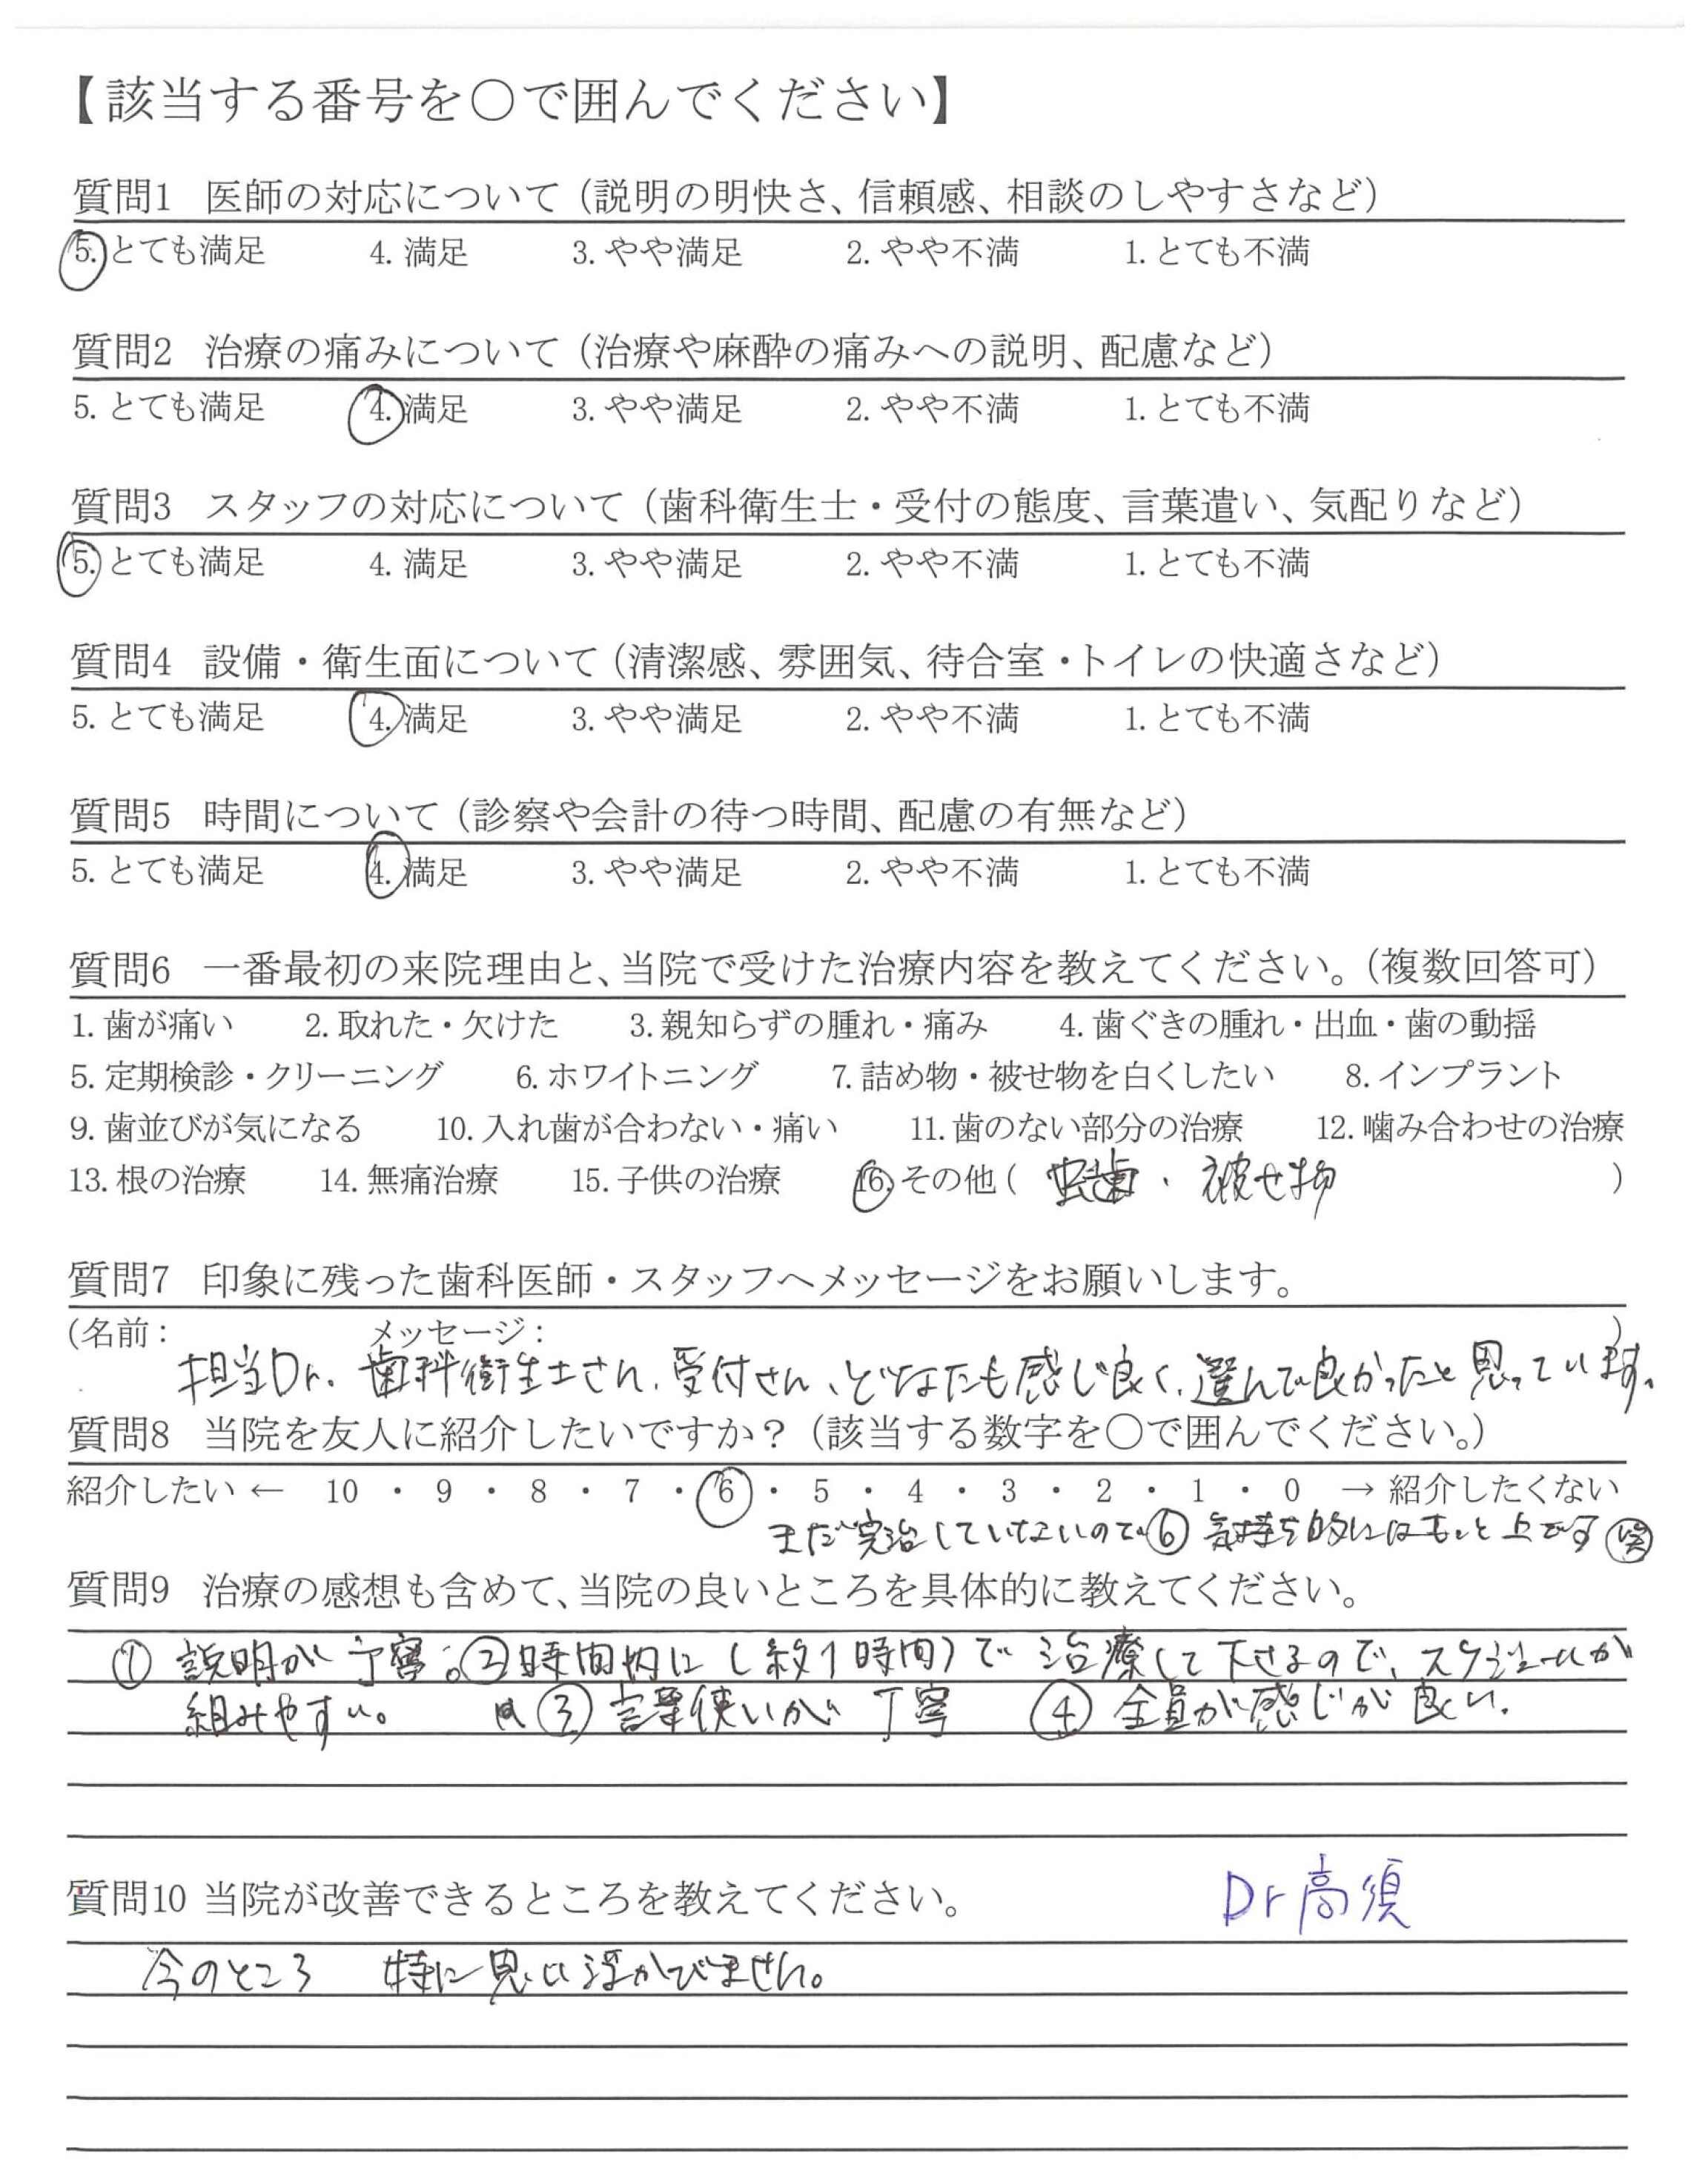 【該当する番号を○で囲んでください】
質問1 医師の対応について（説明の明快さ、信頼感、相談のしやすさなど）
5. とても満足 4. 満足 3. やや満足 2. やや不満 1. とても不満
質問2 治療の痛みについて（治療や麻酔の痛みへの説明、配慮など）
5. とても満足 4. 満足 3. やや満足 2. やや不満 1. とても不満
質問3 スタッフの対応について（歯科衛生士・受付の態度、言葉遣い、気配りなど）
5. とても満足 4. 満足 3. やや満足 2. やや不満 1. とても不満
質問4 設備・衛生面について（清潔感、雰囲気、待合室・トイレの快適さなど）
5. とても満足 4. 満足 3. やや満足 2. やや不満 1. とても不満
質問5 時間について（診察や会計の待つ時間、配慮の有無など）
5. とても満足 4. 満足 3. やや満足 2. やや不満 1. とても不満
質問6 一番最初の来院理由と、当院で受けた治療内容を教えてください。（複数回答可）
1. 歯が痛い 2. 取れた・欠けた 3. 親知らずの腫れ・痛み 4. 歯ぐきの腫れ・出血・歯の動揺
5. 定期検診・クリーニング 6. ホワイトニング 7. 詰め物・被せ物を白くしたい 8. インプラント
9. 歯並びが気になる 10. 入れ歯が合わない・痛い 11. 歯のない部分の治療 12. 噛み合わせの治療
13. 根の治療 14. 無痛治療 15. 子供の治療 16. その他（ 虫歯・被せ物 ）
質問7 印象に残った歯科医師・スタッフへメッセージをお願いします。
(名前： メッセージ： )
担当Dr. 歯科衛生士さん、受付さん、どなたも感じ良く、選んで良かったと思っています。
質問8 当院を友人に紹介したいですか？（該当する数字を○で囲んでください。）
紹介したい ← 10 ・ 9 ・ 8 ・ 7 ・ 6 ・ 5 ・ 4 ・ 3 ・ 2 ・ 1 ・ 0 → 紹介したくない
まだ完治していないので⑥ 気持ち的にはもっと上です㊤
質問9 治療の感想も含めて、当院の良いところを具体的に教えてください。
① 説明が丁寧。②時間内に（約1時間）で治療して下さるので、スケジュールが
組みやすい。 ③ 言葉使いが丁寧 ④ 全員が感じが良い。
質問10 当院が改善できるところを教えてください。 Dr高須
今のところ 特に思い浮かびません。